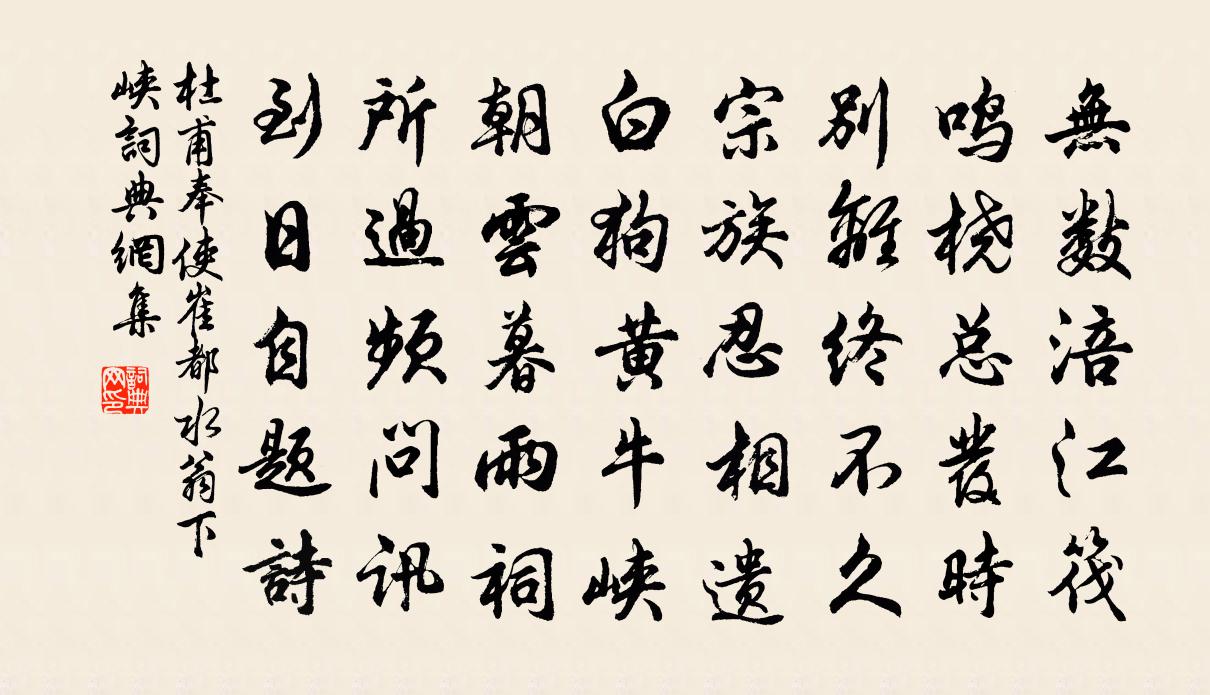 無數涪江筏
鳴橈總發時
別離終不久
宗族忍相遺
白狗黃牛峽
朝雲暮雨祠
所過頻問訊
到日自題詩
杜甫奉使崔都水翁下
峽詞典網集
詞典網印